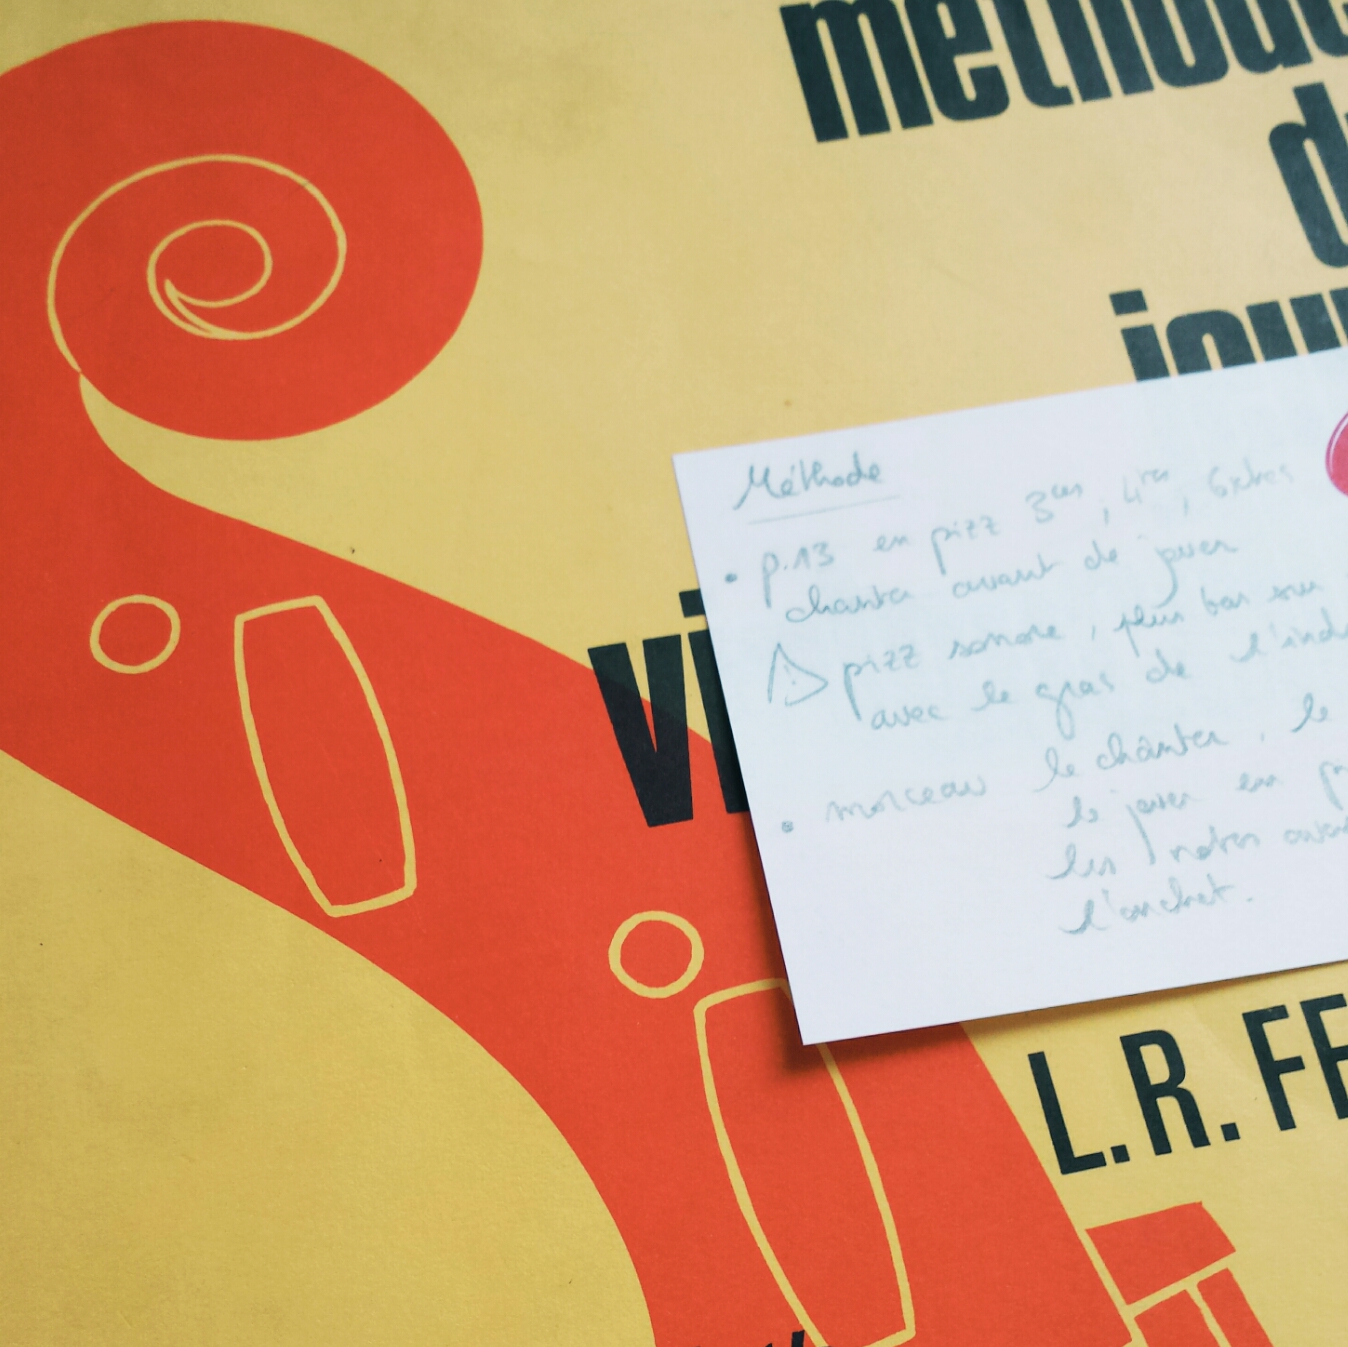 méthode
du
jou
vi
Méthode
• p.13 en pizz 3ces, 4tes, 6xtes
chanter avant de jouer
⚠ pizz sonore, plus bas sur
avec le gras de l'ind
• morceau le chanter, le
le jouer en p
les notes ava
l'archet.
L.R. FE